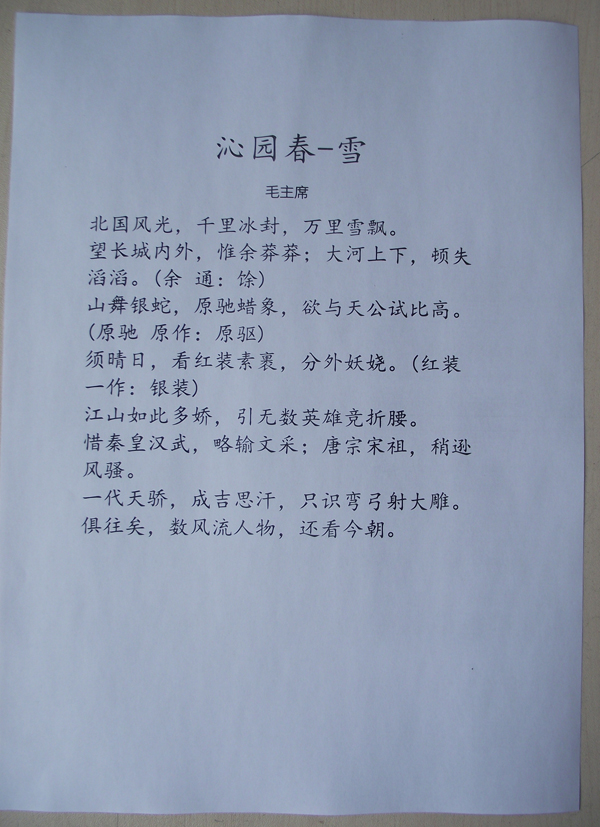 沁园春-雪
毛主席
北国风光，千里冰封，万里雪飘。
望长城内外，惟余莽莽；大河上下，顿失
滔滔。(余 通：馀)
山舞银蛇，原驰蜡象，欲与天公试比高。
(原驰 原作：原驱)
须晴日，看红装素裹，分外妖娆。(红装
一作：银装)
江山如此多娇，引无数英雄竞折腰。
惜秦皇汉武，略输文采；唐宗宋祖，稍逊
风骚。
一代天骄，成吉思汗，只识弯弓射大雕。
俱往矣，数风流人物，还看今朝。